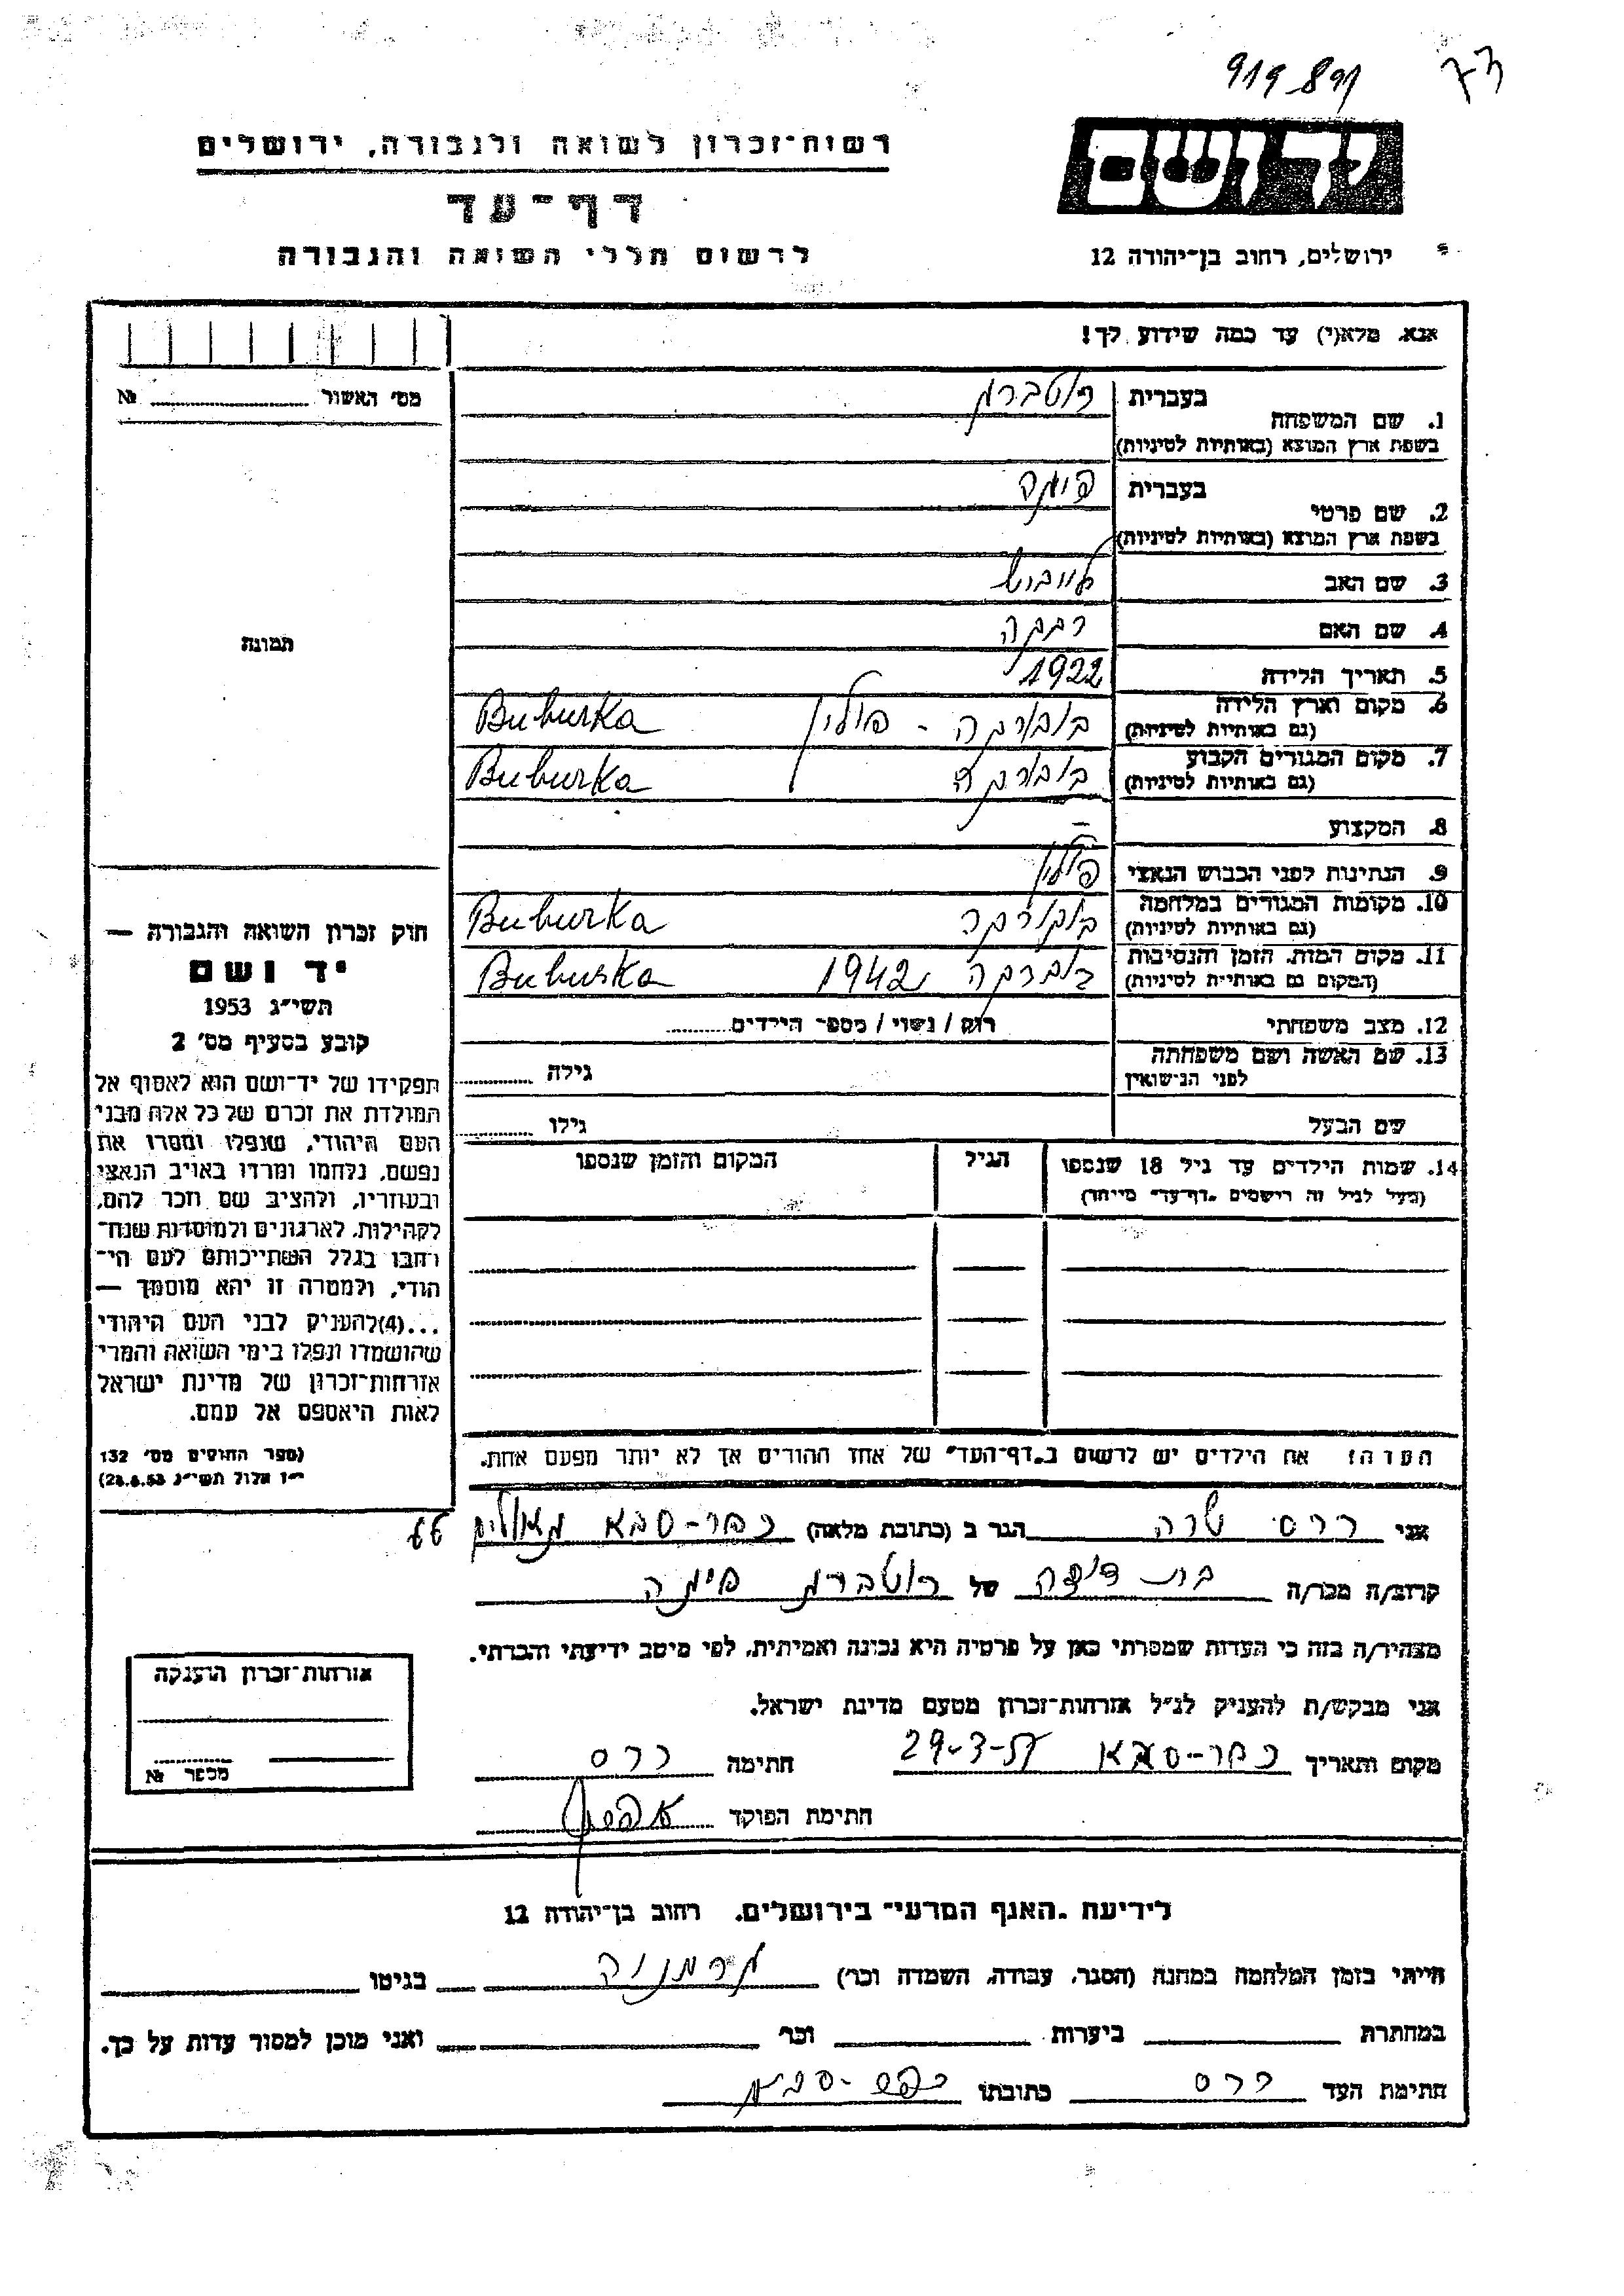 919891
73
יד ושם
ירושלים, רחוב בן־יהודה 12
רשות־זכרון לשואה ולגבורה, ירושלים
דף־עד
לרשום חללי השואה והגבורה
אנא, מלא(י) עד כמה שידוע לך!
מס' האשור № 
1. שם המשפחה
בעברית רוטברט
בשפת ארץ המוצא (באותיות לטיניות)
2. שם פרטי
בעברית
בשפת ארץ המוצא (באותיות לטיניות)
3. שם האב לייביש
4. שם האם רבקה
5. תאריך הלידה 1922
6. מקום וארץ הלידה (גם באותיות לטיניות) בובורקה - פולין Buburka
7. מקום המגורים הקבוע (גם באותיות לטיניות) בובורקה Buburka
8. המקצוע -
9. הנתינות לפני הכבוש הנאצי פולין
10. מקומות המגורים במלחמה (גם באותיות לטיניות) בובורקה Buburka
11. מקום המות, הזמן והנסיבות (המקום גם באותיות לטיניות) בוברקה 1942 Buburka
12. מצב משפחתי רוק / נשוי / מספר הילדים
13. שם האשה ושם משפחתה לפני הנישואין גילה
שם הבעל גילו
14. שמות הילדים עד גיל 18 שנספו הגיל המקום והזמן שנספו
(מעל לגיל זה רישמים "דף־עד" מייחד)
הערה: את הילדים יש לרשום ב"דף־העד" של אחד ההורים אך לא יותר מפעם אחת.
תמונה
חוק זכרון השואה והגבורה —
יד ושם
תשי"ג 1953
קובע בסעיף מס' 2
תפקידו של יד־ושם הוא לאסוף אל
המולדת את זכרם של כל אלה מבני
העם היהודי, שנפלו ומסרו את
נפשם, נלחמו ומרדו באויב הנאצי
ובעוזריו, ולהציב שם וזכר להם,
לקהילות, לארגונים ולמוסדות שנח־
רחבו בגלל השתייכותם לעם הי־
הודי, ולמטרה זו יהא מוסמך —
...(4)להעניק לבני העם היהודי
שהושמדו ונפלו בימי השואה והמרי
אזרחות־זכרון של מדינת ישראל
לאות היאספם אל עמם.
(ספר החוקים מס' 132
י"ז אלול תשי"ג 28.8.53)
אני שרה הגר ב (כתובת מלאה) כפר-סבא
קרוב/ה מכר/ה בת דודה של רוטברט
מצהיר/ה בזה כי העדות שמסרתי כאן על פרטיה היא נכונה ואמיתית, לפי מיטב ידיעתי והכרתי.
אני מבקש/ת להעניק לנ"ל אזרחות־זכרון מטעם מדינת ישראל.
מקום ותאריך כפר-סבא 29-3-57 חתימה
חתימת הפוקד
אזרחות־זכרון הוענקה
מספר №
לידיעת "האגף המדעי" בירושלים, רחוב בן־יהודה 12
הייתי בזמן המלחמה במחנה (הסגר, עבודה, השמדה וכו') בגיטו
במחתרת ביערות וכו' ואני מוכן למסור עדות על כך.
חתימת העד כתובתו כפר-סבא